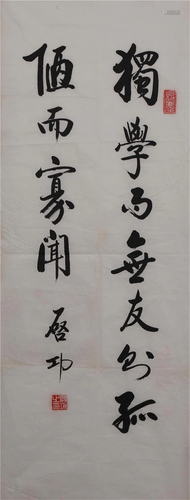 獨學而無友則孤
陋而寡聞
啓功